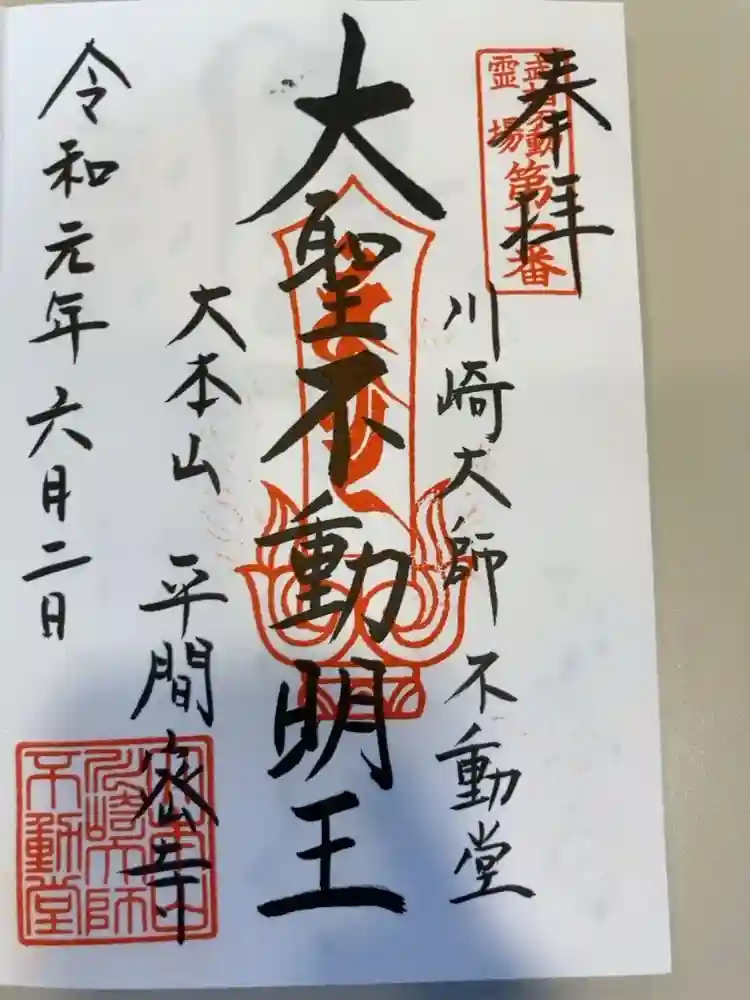 奉拝
武相不動
霊場
第一番
川崎大師 不動堂
大聖不動明王
大本山 平間密寺
令和元年六月二日
川崎大師
不動堂